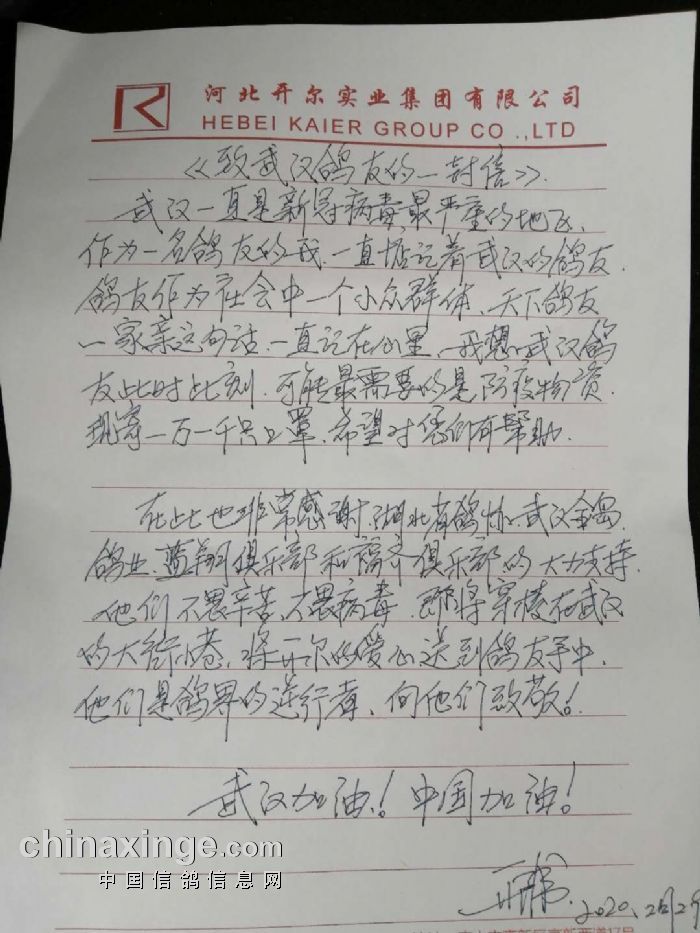 R
河北开尔实业集团有限公司
HEBEI KAIER GROUP CO .,LTD
《致武汉鸽友的一封信》.
武汉一直是新冠病毒最严重的地区、
作为一名鸽友的我、一直惦记着武汉的鸽友.
鸽友作为社会中一个小众群体、天下鸽友
一家亲这句话、一直记在心里、我想武汉鸽
友此时此刻.可能最需要的是防疫物资.
现寄一万一千只口罩、希望对您们有帮助.
在此也非常感谢.湖北省鸽协、武汉金岛
鸽业、蓝翔俱乐部和福齐俱乐部的大力支持.
他们不畏辛苦、不畏病毒、即将穿梭在武汉
的大街小巷、将开尔的爱心送到鸽友手中、
他们是鸽界的逆行者、向他们致敬!
武汉加油!中国加油!
chinaxinge.com
中国信鸽信息网
2020.2月2